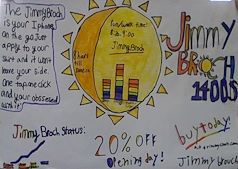 The JimmyBroch
is your Iphone
on the go. Just
apply to your
suit and it won't
leave your side.
One tap one click
and your obsessed
with it.
fun/work time:
JimmyBroch
8 hours
till
Jimmy Broch Status:
20% OFF
Opening day!
Jimmy
BROCH
1400S
buy today!
Jimmy Brouch